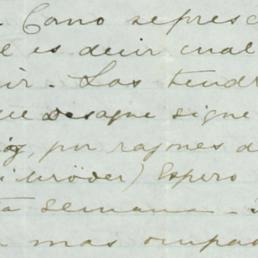 . Cano represe
l es decir cual
ir. Las tendr
ue desaque signe
, por razones d
Espero
a semana
mas ocupad